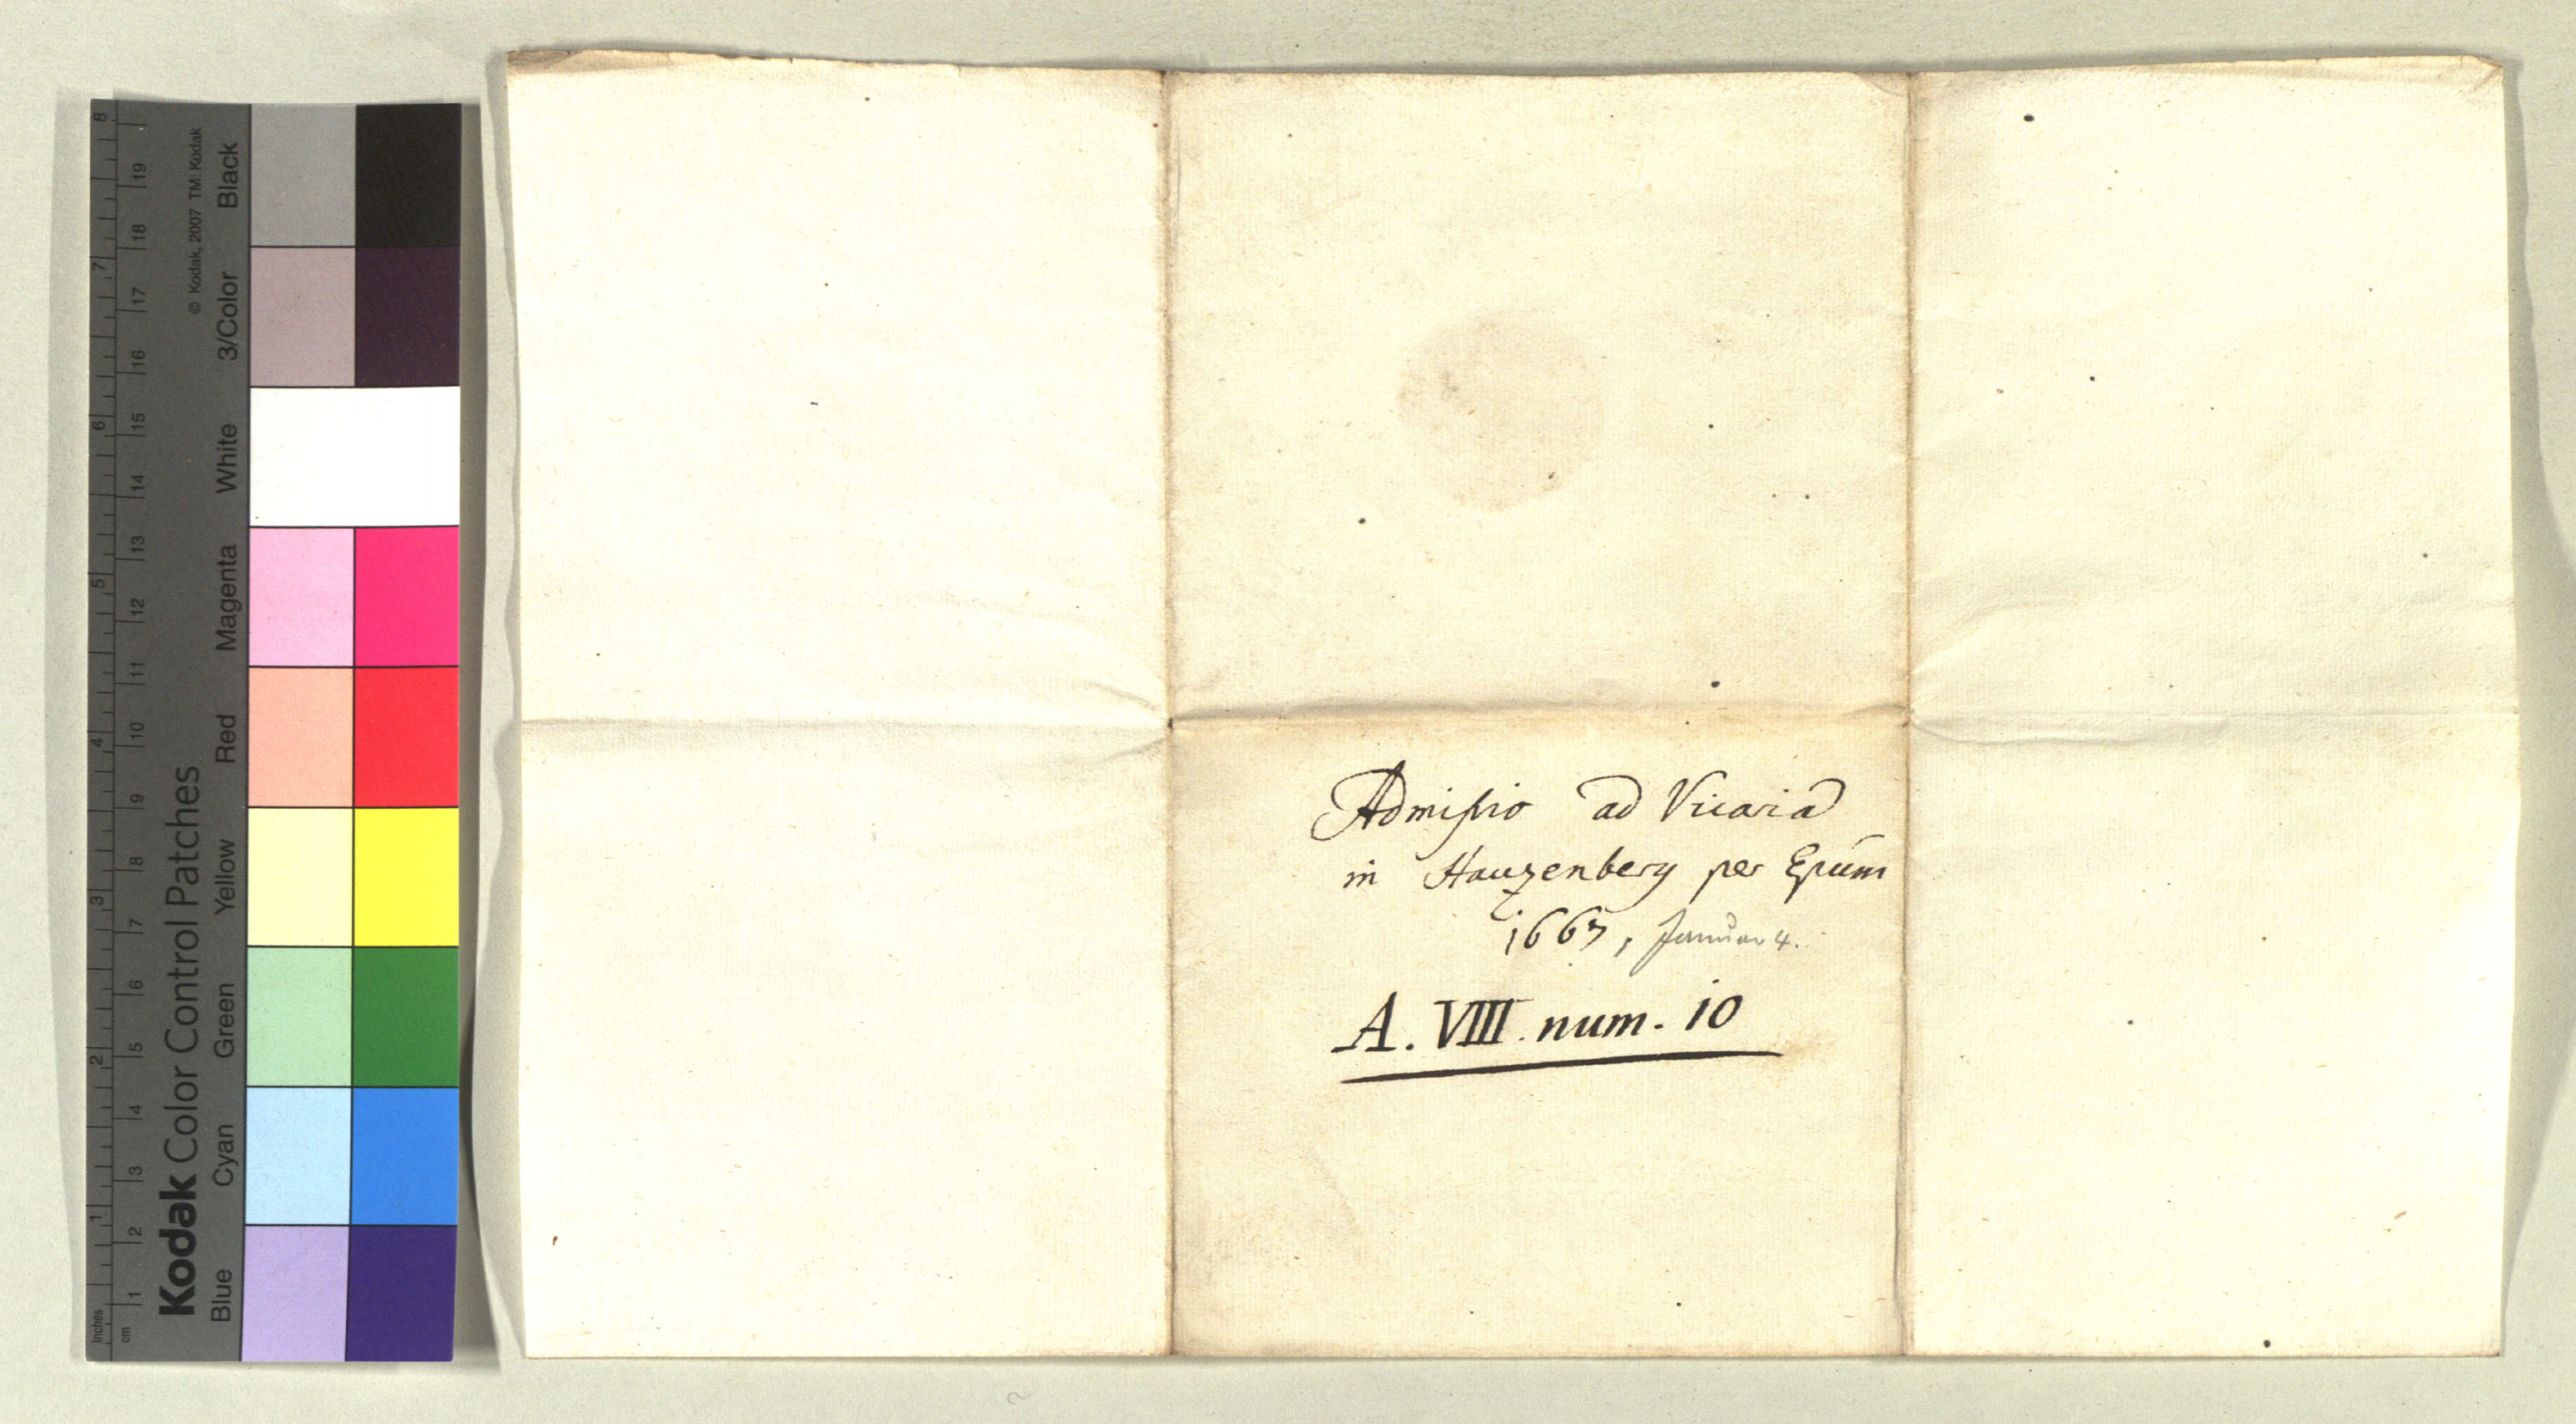 Kodak Color Control Patches
© Kodak, 2007 TM: Kodak
Blue Cyan Green Yellow Red Magenta White 3/Color Black
inches 1 2 3 4 5 6 7 8
cm 1 2 3 4 5 6 7 8 9 10 11 12 13 14 15 16 17 18 19
Admissio ad Vicariā
in Hauzenberg per Epũm
1667, Januar 4.
A. VIII. num. 10